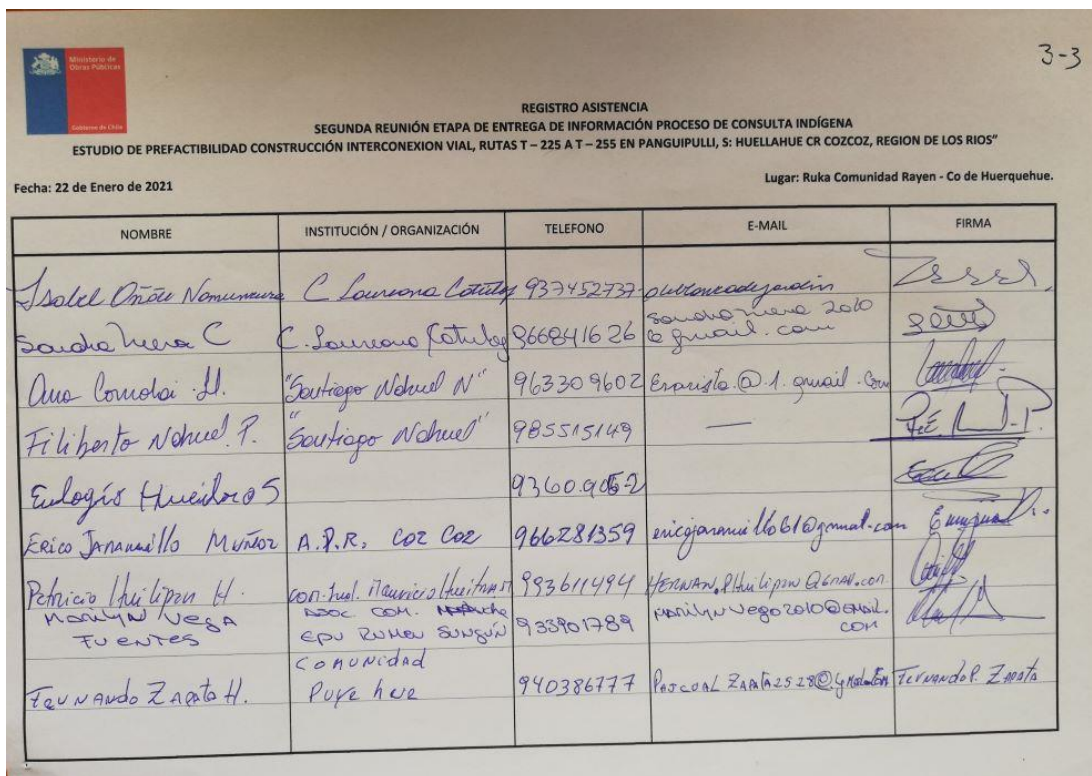 Ministerio de
Obras Públicas
Gobierno de Chile
3-3
REGISTRO ASISTENCIA
SEGUNDA REUNIÓN ETAPA DE ENTREGA DE INFORMACIÓN PROCESO DE CONSULTA INDÍGENA
ESTUDIO DE PREFACTIBILIDAD CONSTRUCCIÓN INTERCONEXION VIAL, RUTAS T – 225 A T – 255 EN PANGUIPULLI, S: HUELLAHUE CR COZCOZ, REGION DE LOS RIOS"
Fecha: 22 de Enero de 2021
Lugar: Ruka Comunidad Rayen - Co de Huerquehue.
NOMBRE INSTITUCIÓN / ORGANIZACIÓN TELEFONO E-MAIL FIRMA
Isabel C 937452737
Sandra Mera C C. 966841626 sandramera 2010
@gmail.com
Ana "Santiago Nahuel N" 963309602 Evarista.@.1.gmail.com
Filiberto Nahuel. P. "Santiago Nahuel" 985515149 —
Eulogio
Erico Jaramillo Muñoz A.P.R. COZ COZ 966281359 ericojaramillo61@gmal.com
Patricio Huilipan H. Mauricio 993611494
Marilyn Vega
Fuentes
ASOC COM.
EPU 933901789 Marilyn vega2010@GMAIL.
COM
Fernando Zapata H.
Comunidad
Puyehue 940386777 Fernando P. Zapata